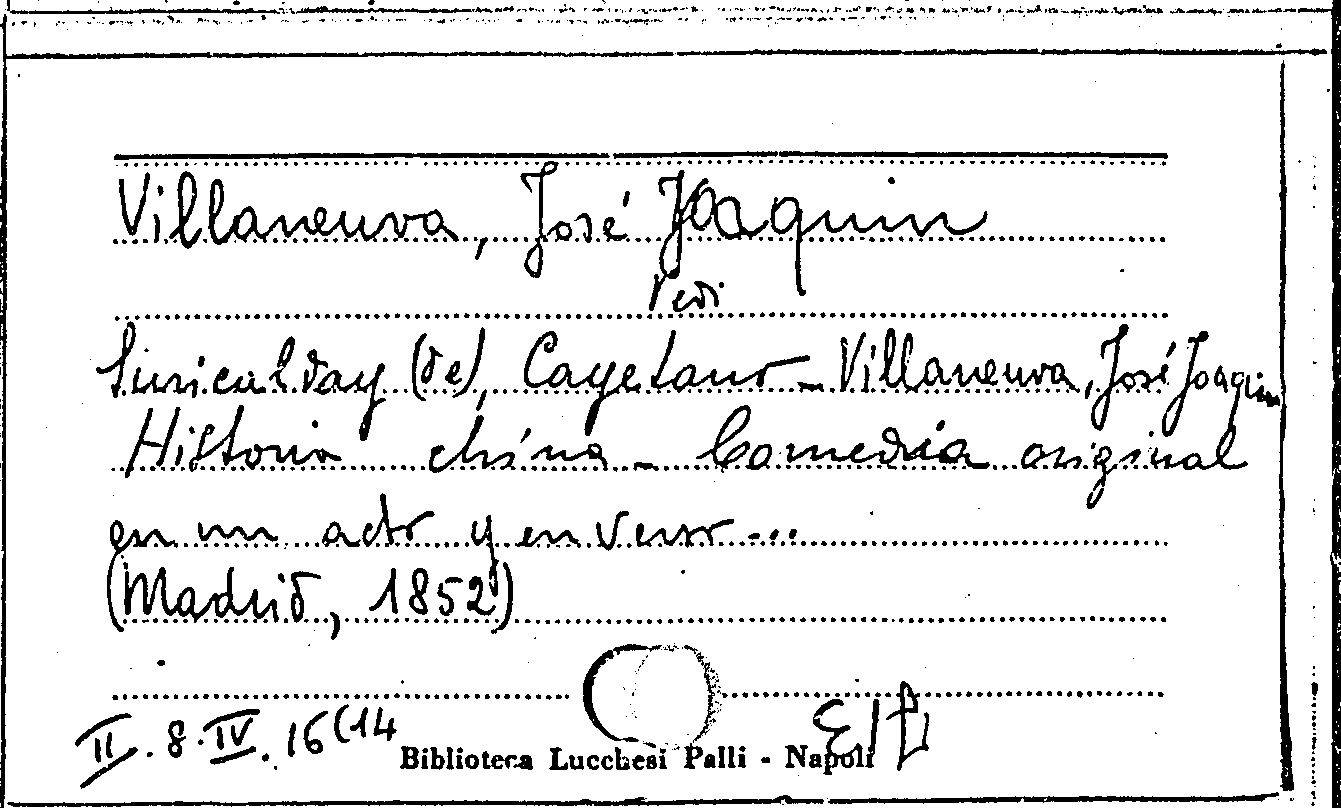 Villaneuva, José Joaquin
Vedi
Suricalday (de), Cayetano - Villaneuva, José Joaquin
Historia china - Comedia original
en un acto y en verso...
(Madrid, 1852)
II. 8. IV. 16(14
Biblioteca Lucchesi Palli - Napoli